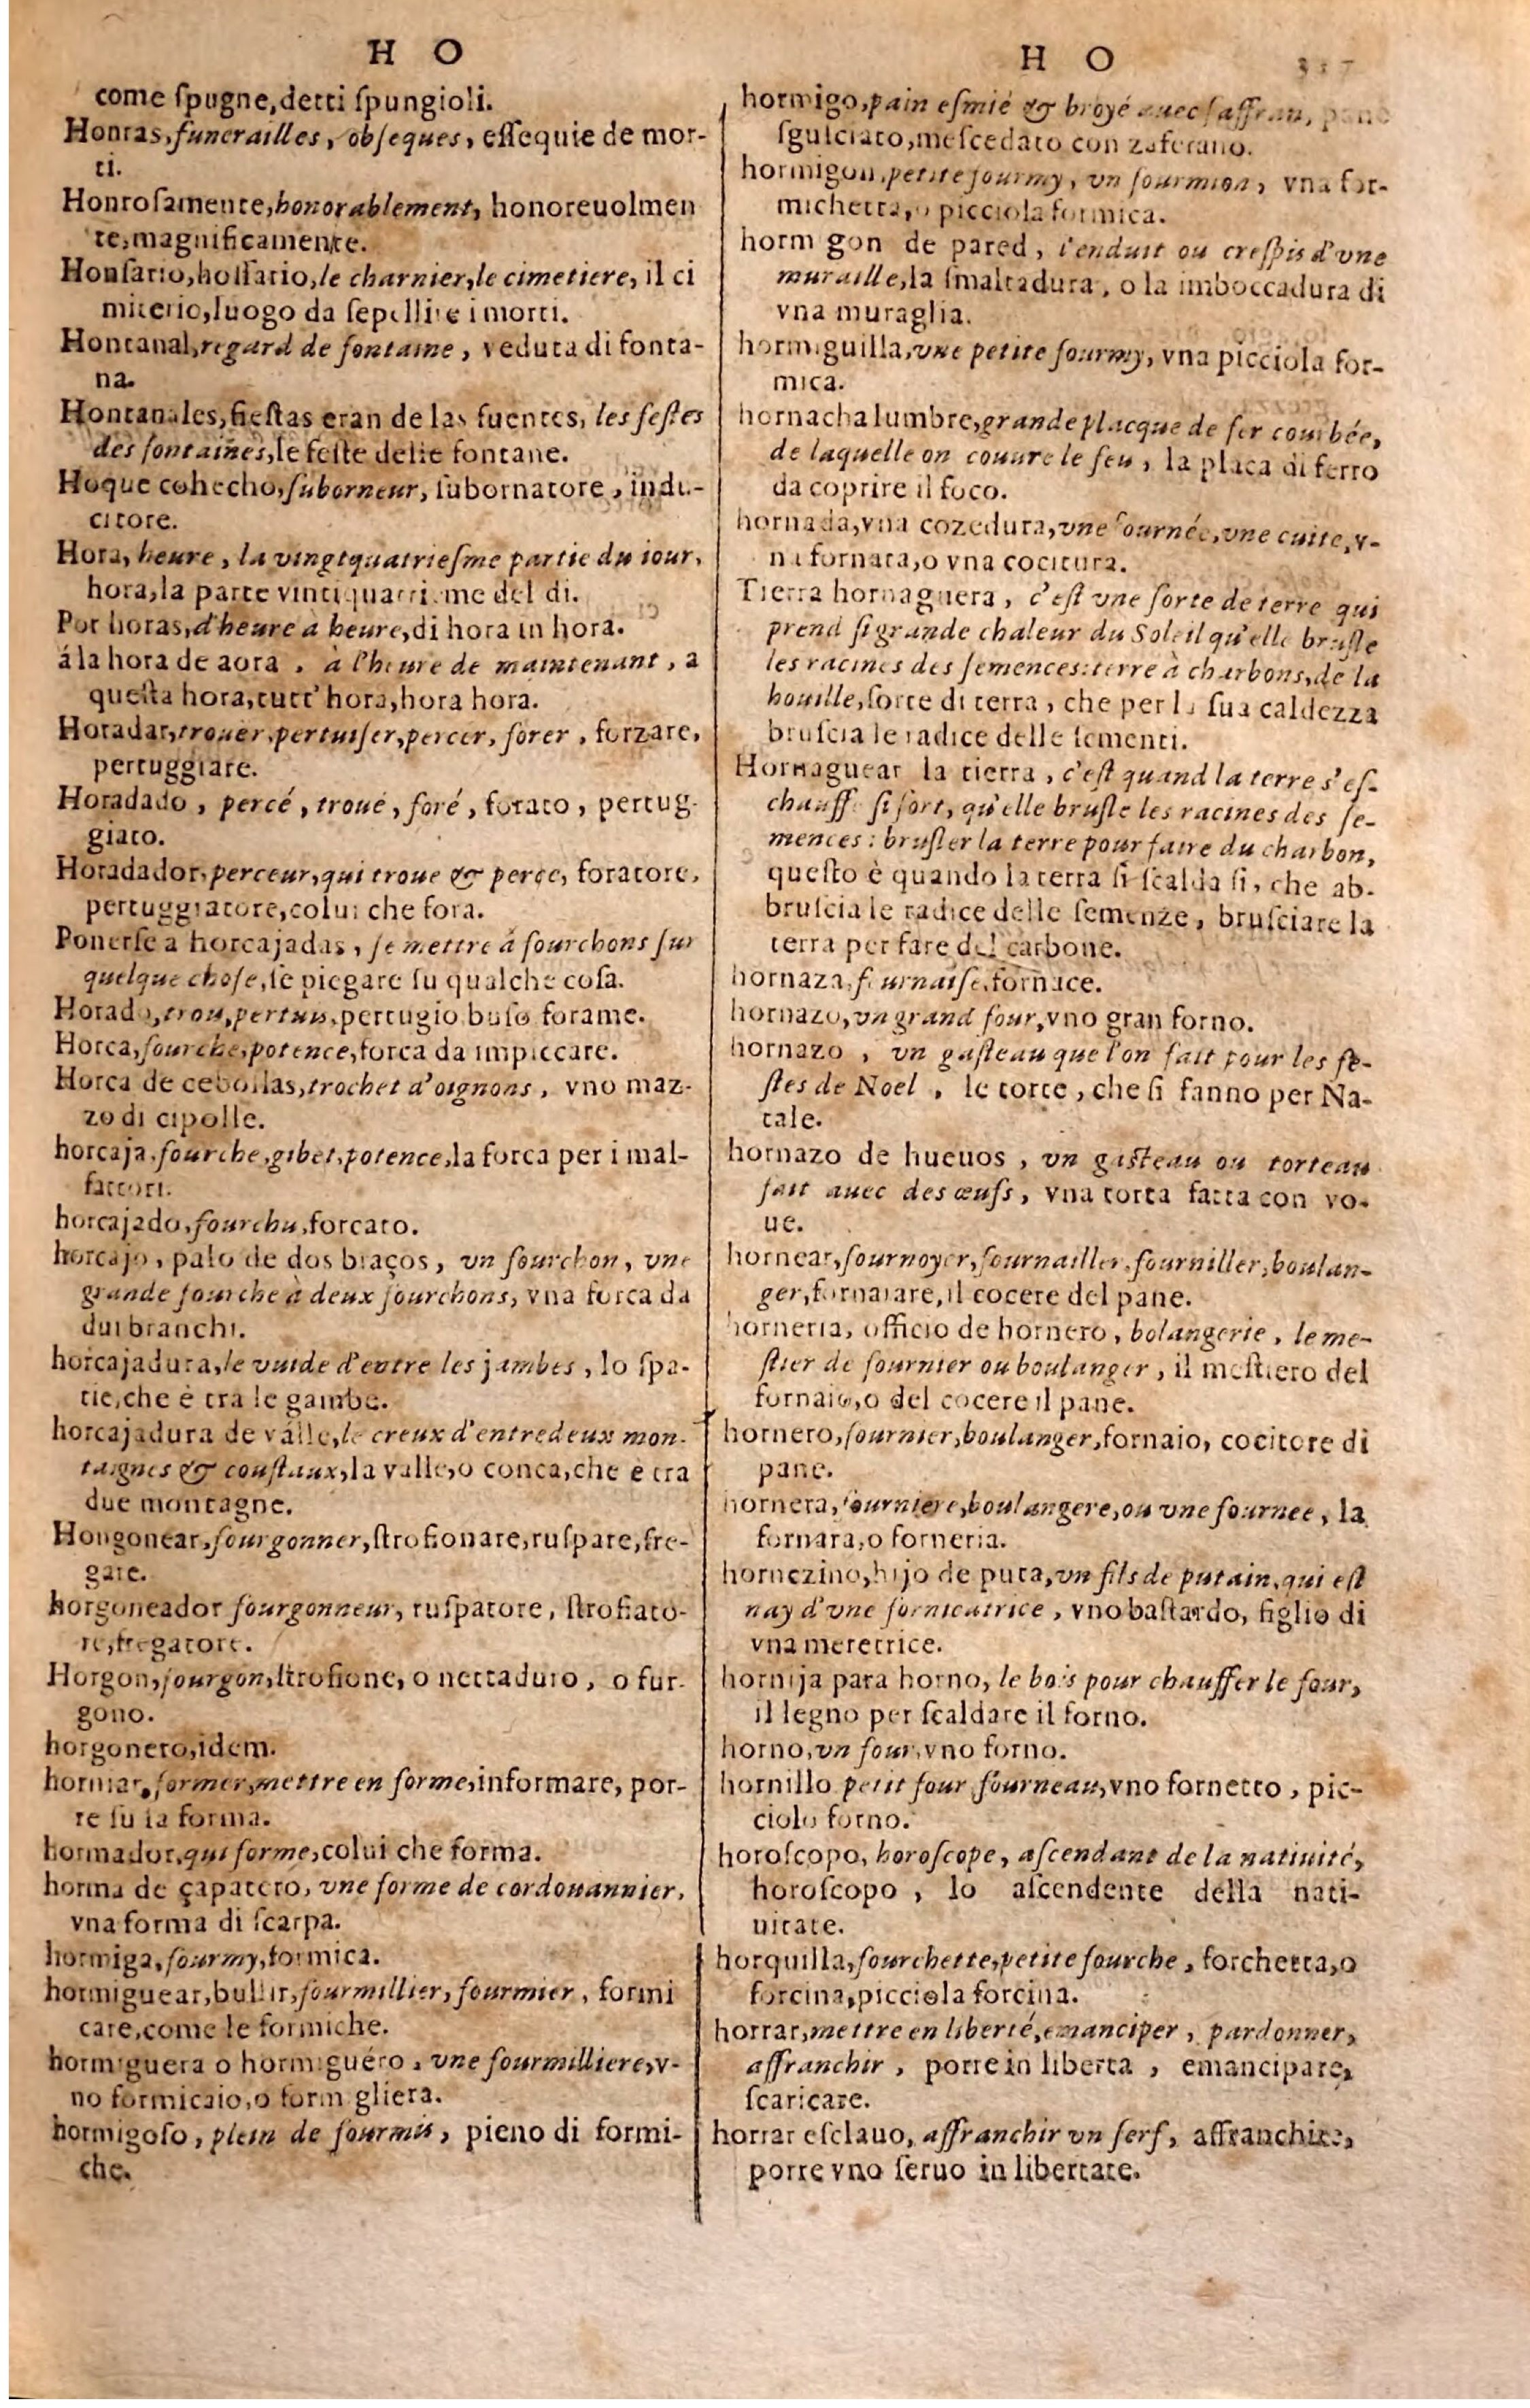 H O
come ſpugne,detti ſpungioli.
Honras,funerailles, obſeques, eſſequie de mor-
ti.
Honroſamente,honorablement, honoreuolmen
te,magnificamente.
Honſario,hoſſario,le charnier,le cimetiere, il ci
miterio,luogo da ſepellire i morti.
Hontanal,regard de fontaine, veduta di fonta-
na.
Hontanales,fieſtas eran de las fuentes, les feſtes
des fontaines,le feſte delle fontane.
Hoque cohecho,ſuborneur, ſubornatore, indu-
citore.
Hora, heure, la vingtquatrieſme partie du iour,
hora,la parte vintiquattrieme del di.
Por horas,d'heure à heure,di hora in hora.
á la hora de aora, à l'heure de maintenant, a
queſta hora,tutt' hora,hora hora.
Horadar,trouer,pertuiſer,percer, forer, forzare,
pertuggiare.
Horadado, percé, troué, foré, forato, pertug-
giato.
Horadador,perceur,qui troue & perce, foratore,
pertuggiatore,colui che fora.
Ponerſe a horcajadas, ſe mettre à fourchons ſur
quelque choſe,ſe piegare ſu qualche coſa.
Horado,trou,pertuis,pertugio,buſo forame.
Horca,fourche,potence,forca da impiccare.
Horca de cebollas,trochet d'oignons, vno maz-
zo di cipolle.
horcaja,fourche,gibet,potence,la forca per i mal-
fattori.
horcajado,fourchu,forcato.
horcajo, palo de dos braços, vn fourchon, vne
grande fourche à deux fourchons, vna forca da
dui branchi.
horcajadura,le vuide d'entre les jambes, lo ſpa-
tie,che è tra le gambe.
horcajadura de valle,le creux d'entredeux mon-
taignes & couſtaux,la valle,o conca,che è tra
due montagne.
Hongonear,fourgonner,ſtrofionare,ruſpare,fre-
gare.
horgoneador fourgonneur, ruſpatore, ſtrofiato-
re,fregatore.
Horgon,fourgon,ſtrofione, o nettaduro, o fur-
gono.
horgonero,idem.
hormar,former,mettre en forme,informare, por-
re ſu la forma.
hormador,qui forme,colui che forma.
horma de çapatero, vne forme de cordouannier,
vna forma di ſcarpa.
hormiga,fourmy,formica.
hormiguear,bullir,fourmillier, fourmier, formi
care,come le formiche.
hormiguera o hormiguéro, vne fourmilliere,v-
no formicaio,o formigliera.
hormigoſo, plein de fourmis, pieno di formi-
che.
H O
317
hormigo,pain eſmié & broyé auec ſaffran, pane
ſgulciato,meſcedato con zaferano.
hormigon,petite fourmy, vn fourmion, vna for-
michetta,o picciola formica.
hormigon de pared, l'enduit ou creſpis d'vne
muraille,la ſmaltadura, o la imboccadura di
vna muraglia.
hormiguilla,vne petite fourmy, vna picciola for-
mica.
hornachalumbre,grande placque de fer courbée,
de laquelle on couure le feu, la placa di ferro
da coprire il foco.
hornada,vna cozedura,vne fournée,vne cuite,v-
na fornata,o vna cocitura.
Tierra hornaguera, c'eſt vne ſorte de terre qui
prend ſi grande chaleur du Soleil qu'elle bruſle
les racines des ſemences:terre à charbons,de la
houille,ſorte di terra, che per la ſua caldezza
bruſcia le radice delle ſementi.
Hornaguear la tierra, c'eſt quand la terre s'eſ-
chauffe ſi fort, qu'elle bruſle les racines des ſe-
mences: bruſler la terre pour faire du charbon,
queſto è quando la terra ſi ſcalda ſi, che ab-
bruſcia le radice delle ſemenze, bruſciare la
terra per fare del carbone.
hornaza,fournaiſe,fornace.
hornazo,vn grand four,vno gran forno.
hornazo, vn gaſteau que l'on fait pour les fe-
ſtes de Noel, le torte, che ſi fanno per Na-
tale.
hornazo de hueuos, vn gaſteau ou torteau
fait auec des œufs, vna torta fatta con vo-
ue.
hornear,fournoyer,fournailler,fourniller,boulan-
ger,fornaiare,il cocere del pane.
horneria, officio de hornero, bolangerie, le me-
ſtier de fournier ou boulanger, il meſtiero del
fornaio,o del cocere il pane.
hornero,fournier,boulanger,fornaio, cocitore di
pane.
hornera,fourniere,boulangere,ou vne fournee, la
fornara,o forneria.
hornezino,hijo de puta,vn fils de putain,qui eſt
nay d'vne fornicatrice, vno baſtardo, figlio di
vna meretrice.
hornija para horno, le bois pour chauffer le four,
il legno per ſcaldare il forno.
horno,vn four,vno forno.
hornillo petit four,fourneau,vno fornetto, pic-
ciolo forno.
horoſcopo, horoſcope, aſcendant de la natiuité,
horoſcopo, lo aſcendente della nati-
uitate.
horquilla,fourchette,petite fourche, forchetta,o
forcina,picciola forcina.
horrar,mettre en liberté,emanciper, pardonner,
affranchir, porre in liberta, emancipare,
ſcaricare.
horrar eſclauo, affranchir vn ſerf, affranchire,
porre vno ſeruo in libertate.